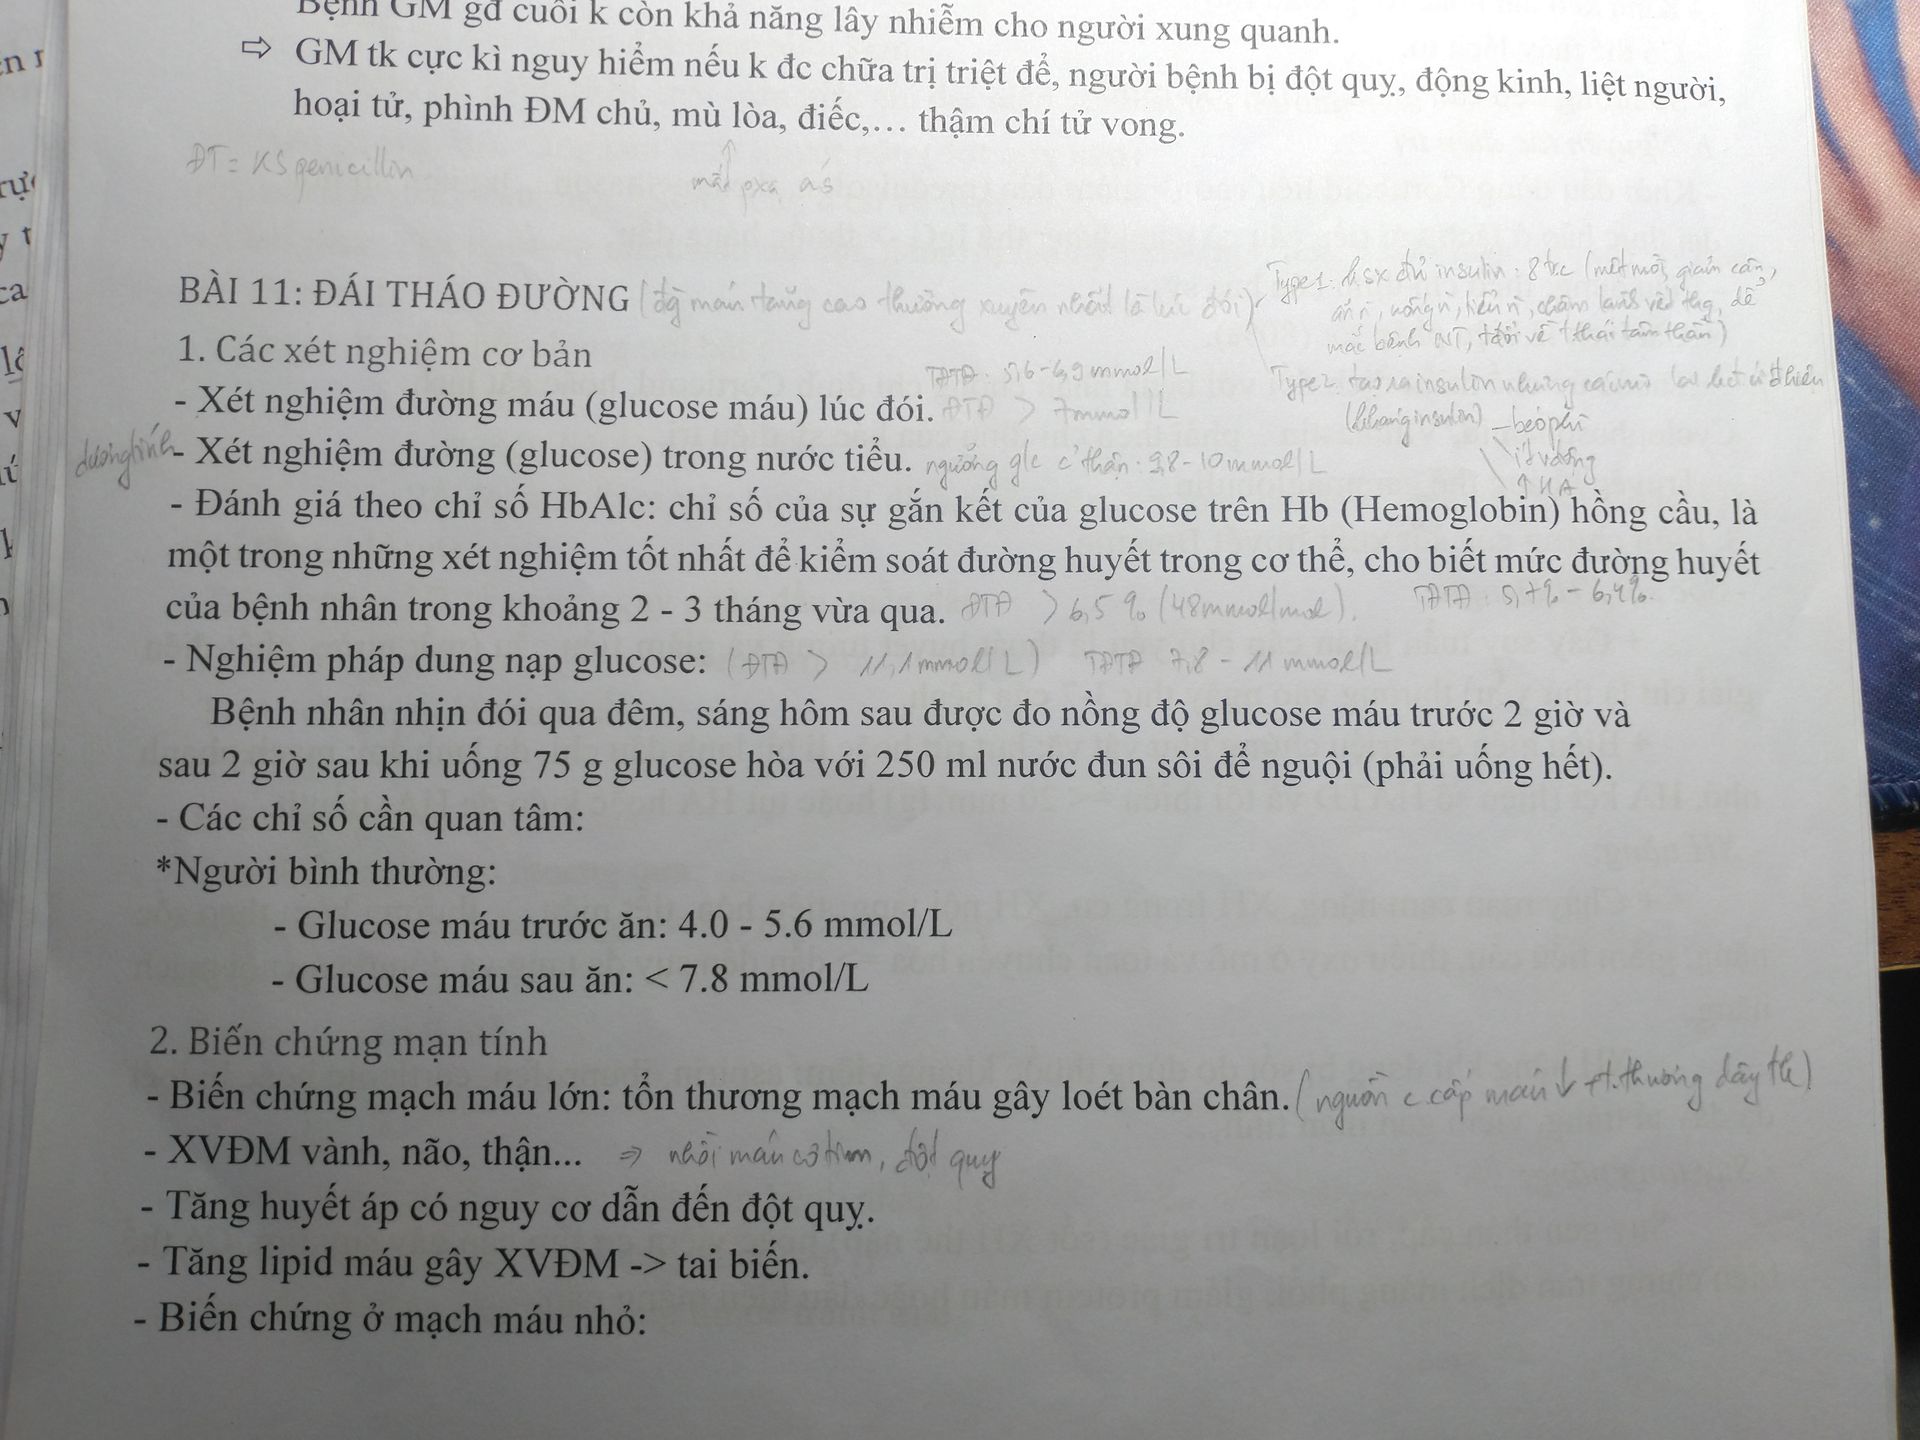 Bệnh GM gđ cuối k còn khả năng lây nhiễm cho người xung quanh.
⇨ GM tk cực kì nguy hiểm nếu k đc chữa trị triệt để, người bệnh bị đột quỵ, động kinh, liệt người,
hoại tử, phình ĐM chủ, mù lòa, điếc,… thậm chí tử vong.
ĐT = KS penicillin
mất pxa ás
BÀI 11: ĐÁI THÁO ĐƯỜNG (đg máu tăng cao thường xuyên nhất là lúc đói)
Type1: k sx đủ insulin: 8 tr.c (mệt mỏi, giảm cân,
ăn n', uống n', tiểu n', chậm lành vết thg, dễ
mắc bệnh NT, t.đổi về t.thái tâm thần)
1. Các xét nghiệm cơ bản
TĐTĐ: 5,6 - 6,9 mmol/L
Type2: tạo ra insulin nhưng
- Xét nghiệm đường máu (glucose máu) lúc đói. ĐTĐ > 7 mmol/L
(kháng insulin) - béo phì
dương tính - Xét nghiệm đường (glucose) trong nước tiểu. ngưỡng glc ở thận: 9,8 - 10 mmol/L
ít vđộng
↑HA
- Đánh giá theo chỉ số HbAlc: chỉ số của sự gắn kết của glucose trên Hb (Hemoglobin) hồng cầu, là
một trong những xét nghiệm tốt nhất để kiểm soát đường huyết trong cơ thể, cho biết mức đường huyết
của bệnh nhân trong khoảng 2 - 3 tháng vừa qua. ĐTĐ > 6,5% (48mmol/mol). TĐTĐ: 5,7% - 6,4%.
- Nghiệm pháp dung nạp glucose: (ĐTĐ > 11,1 mmol/L) TĐTĐ 7,8 - 11 mmol/L
Bệnh nhân nhịn đói qua đêm, sáng hôm sau được đo nồng độ glucose máu trước 2 giờ và
sau 2 giờ sau khi uống 75 g glucose hòa với 250 ml nước đun sôi để nguội (phải uống hết).
- Các chỉ số cần quan tâm:
*Người bình thường:
- Glucose máu trước ăn: 4.0 - 5.6 mmol/L
- Glucose máu sau ăn: < 7.8 mmol/L
2. Biến chứng mạn tính
- Biến chứng mạch máu lớn: tổn thương mạch máu gây loét bàn chân. (nguồn c.cấp máu ↓ + t.thương dây tk)
- XVĐM vành, não, thận... ⇒ nhồi máu cơ tim, đột quỵ
- Tăng huyết áp có nguy cơ dẫn đến đột quỵ.
- Tăng lipid máu gây XVĐM -> tai biến.
- Biến chứng ở mạch máu nhỏ: